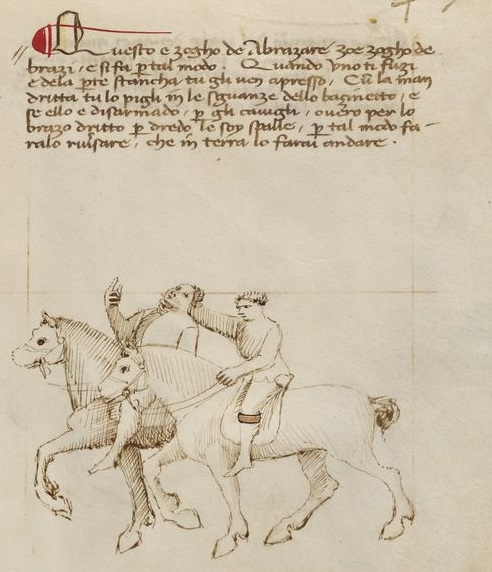 Questo e zogho de Abrazare zoe zogho de
brazi, e si fa p tal modo. Quando uno ti fuzi
e dela pte stancha tu gli ven apresso, Cum la man
dritta tu lo pigli in le sguanze dello bacinetto, e
se ello e disarmado, p gli cavigli, overo per lo
brazo dritto p dredo le soy spalle, p tal modo fa-
ralo riversare, che in terra lo farai andare.